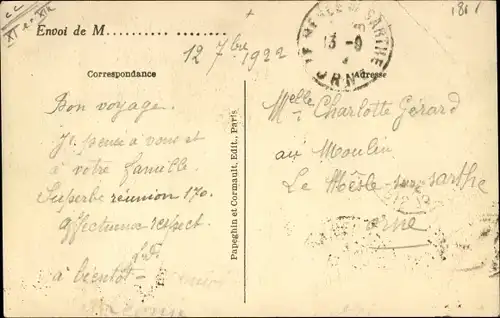 Envoi de M.......... ..........
12 7bre 1922
LE MESLE-s-SARTHE
13-9
ORNE
Correspondance
Adresse
Bon voyage.
Je pense à vous et
à votre famille.
Superbe réunion 170.
Affectueux respect.
à bientôt -
Papeghin et Cormault, Edit., Paris
Melle Charlotte Gérard
au Moulin
Le Mesle-sur-sarthe
orne